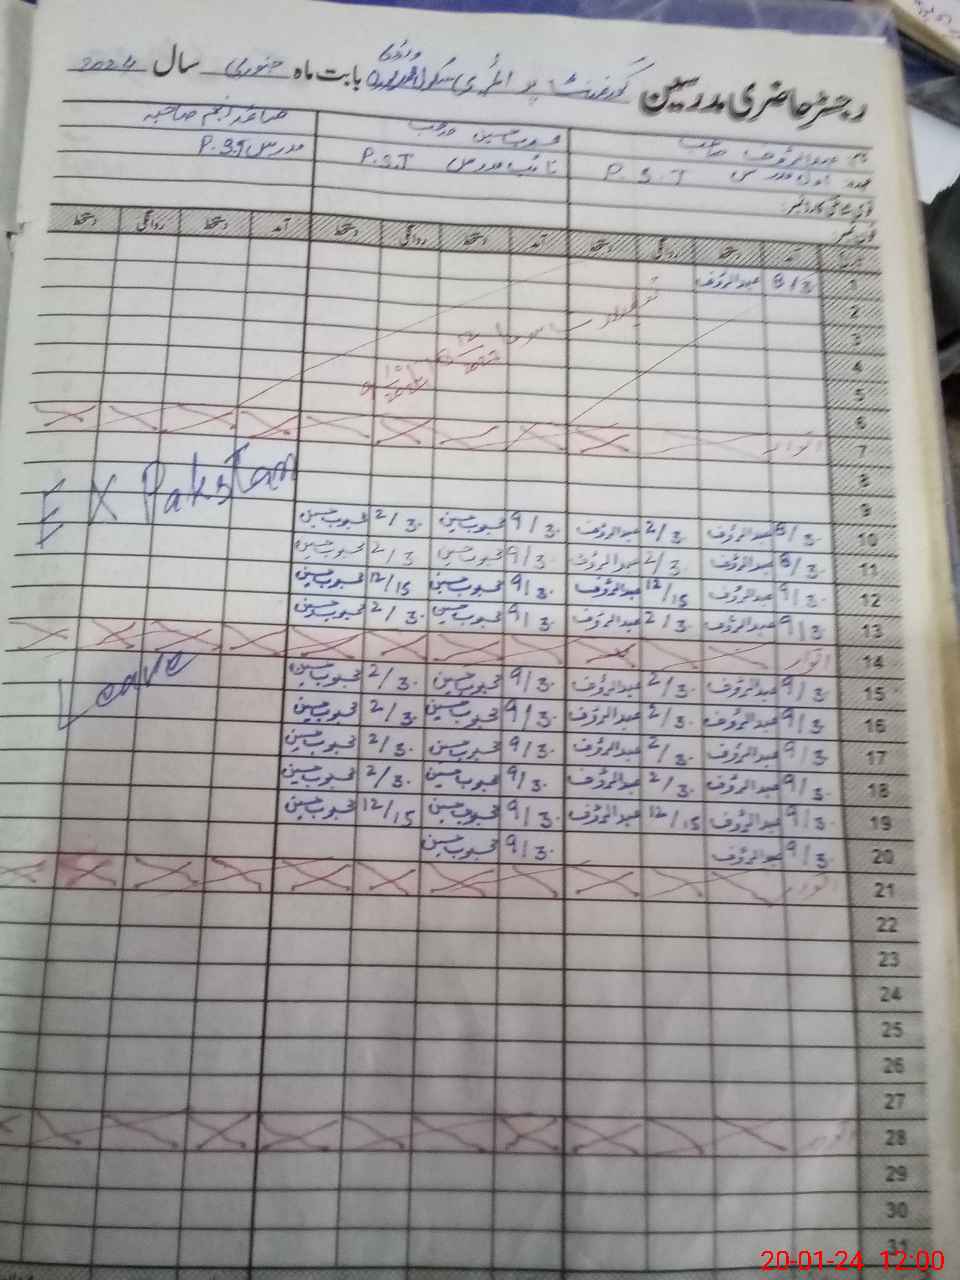 رجسٹر حاضری مدرسین گورنمنٹ پرائمری سکول بابت ماہ جنوری سال 2024
نام عبدالرؤف صاحب محبوب حسین صاحب صائمہ انجم صاحبہ
عہدہ اول مدرس P.S.T نائب مدرس P.S.T مدرس P.S.T
قومی شناختی کارڈ نمبر:
فون نمبر:
تاریخ آمد دستخط روانگی دستخط آمد دستخط روانگی دستخط آمد دستخط روانگی دستخط
1 8/3 عبدالرؤف
2
3
4
5
6
7 اتوار
8
9
EX Pakistan
10 8/3 عبدالرؤف 2/3 عبدالرؤف 9/3 محبوب حسین 2/3 محبوب حسین
11 8/3 عبدالرؤف 2/3 عبدالرؤف 9/3 محبوب حسین 2/3 محبوب حسین
12 9/3 عبدالرؤف 12/15 عبدالرؤف 9/3 محبوب حسین 12/15 محبوب حسین
13 9/3 عبدالرؤف 2/3 عبدالرؤف 9/3 محبوب حسین 2/3 محبوب حسین
14 اتوار
Leave
15 9/3 عبدالرؤف 2/3 عبدالرؤف 9/3 محبوب حسین 2/3 محبوب حسین
16 9/3 عبدالرؤف 2/3 عبدالرؤف 9/3 محبوب حسین 2/3 محبوب حسین
17 9/3 عبدالرؤف 2/3 عبدالرؤف 9/3 محبوب حسین 2/3 محبوب حسین
18 9/3 عبدالرؤف 2/3 عبدالرؤف 9/3 محبوب حسین 2/3 محبوب حسین
19 9/3 عبدالرؤف 12/15 عبدالرؤف 9/3 محبوب حسین 12/15 محبوب حسین
20 9/3 عبدالرؤف 9/3 محبوب حسین
21 اتوار
22
23
24
25
26
27
28 اتوار
29
30
31
20-01-24 12:00